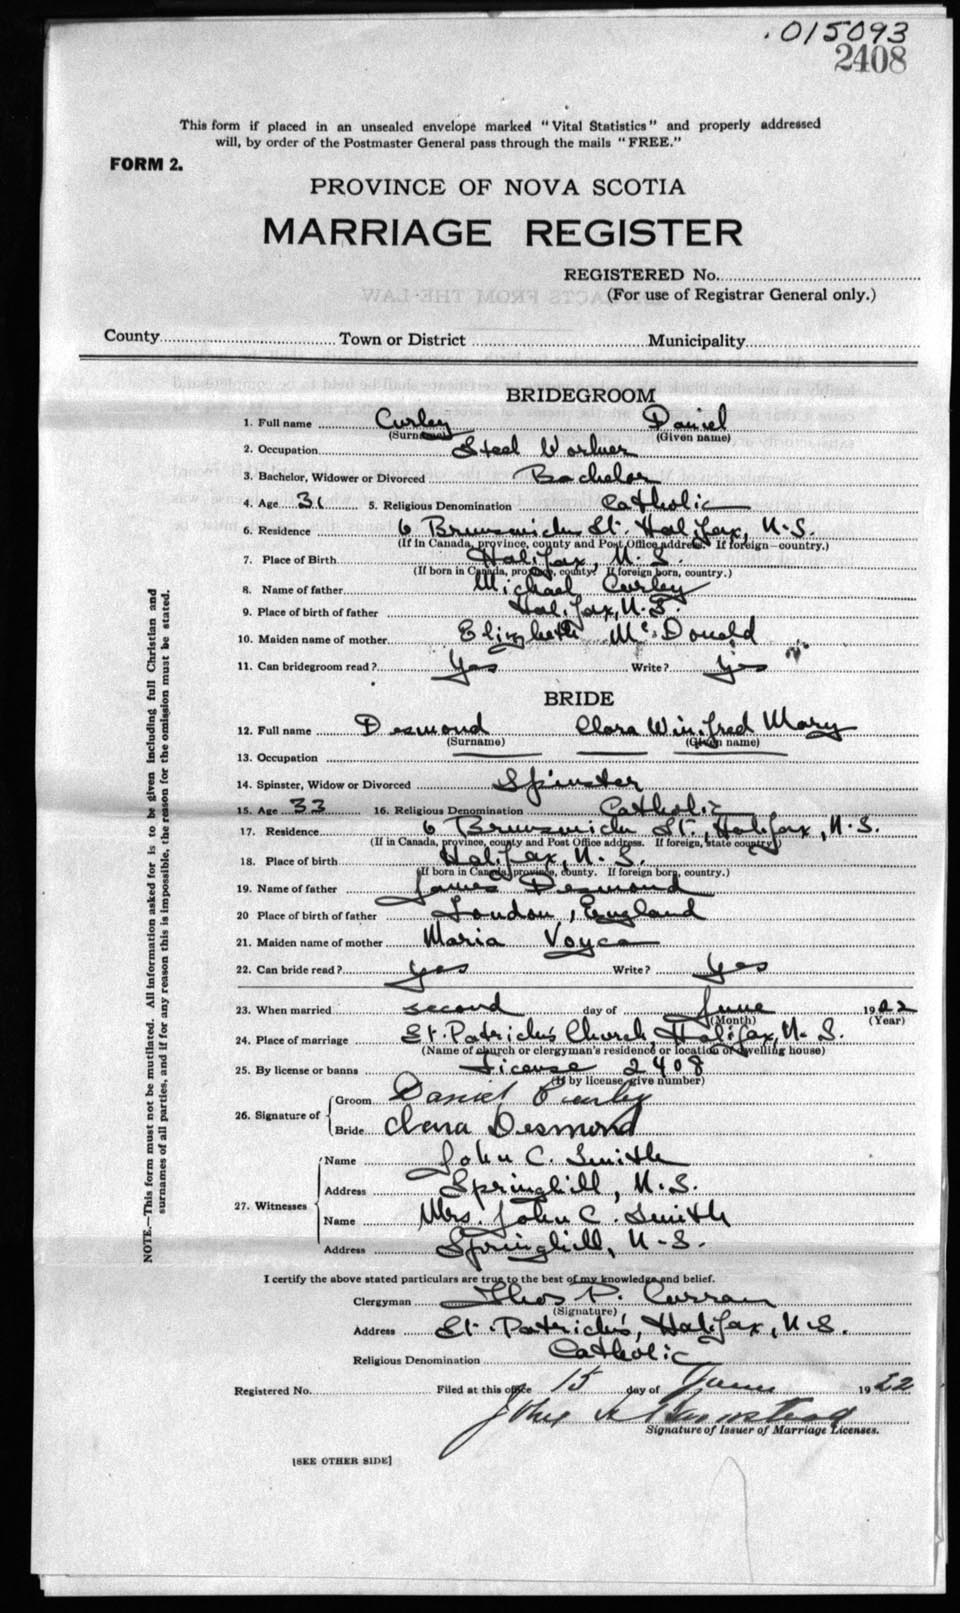 .015093
2408
This form if placed in an unsealed envelope marked "Vital Statistics" and properly addressed
will, by order of the Postmaster General pass through the mails "FREE."
FORM 2.
PROVINCE OF NOVA SCOTIA
MARRIAGE REGISTER
REGISTERED No.
(For use of Registrar General only.)
County Town or District Municipality
BRIDEGROOM
1. Full name Curley Daniel
(Surname) (Given name)
2. Occupation Steel Worker
3. Bachelor, Widower or Divorced Bachelor
4. Age 31 5. Religious Denomination Catholic
6. Residence 6 Brunswick St. Halifax, N.S.
(If in Canada, province, county and Post Office address. If foreign—country.)
7. Place of Birth Halifax, N.S.
(If born in Canada, province, county. If foreign born, country.)
8. Name of father Michael Curley
9. Place of birth of father Halifax, N.S.
10. Maiden name of mother Elizabeth McDonald
11. Can bridegroom read? Yes Write? yes
BRIDE
12. Full name Desmond Clara Winifred Mary
(Surname) (Given name)
13. Occupation
14. Spinster, Widow or Divorced Spinster
15. Age 33 16. Religious Denomination Catholic
17. Residence 6 Brunswick St., Halifax, N.S.
(If in Canada, province, county and Post Office address. If foreign, state country)
18. Place of birth Halifax, N.S.
(If born in Canada, province, county. If foreign born, country.)
19. Name of father James Desmond
20 Place of birth of father London, England
21. Maiden name of mother Maria
22. Can bride read? yes Write? yes
23. When married second day of June 1922
(Month) (Year)
24. Place of marriage St. Patrick's Church, Halifax, N.S.
(Name of church or clergyman's residence or location of dwelling house)
25. By license or banns License 2408
(If by license, give number)
26. Signature of
Groom Daniel Curley
Bride Clara Desmond
27. Witnesses
Name John C. Smith
Address Springhill, N.S.
Name Mrs. John C. Smith
Address Springhill, N.S.
I certify the above stated particulars are true to the best of my knowledge and belief.
Clergyman Thos P. Curran
(Signature)
Address St. Patrick's, Halifax, N.S.
Religious Denomination Catholic
Registered No. Filed at this office 15 day of June 1922
John
Signature of Issuer of Marriage Licenses.
[SEE OTHER SIDE]
NOTE.—This form must not be mutilated. All information asked for is to be given including full Christian and
surnames of all parties, and if for any reason this is impossible, the reason for the omission must be stated.